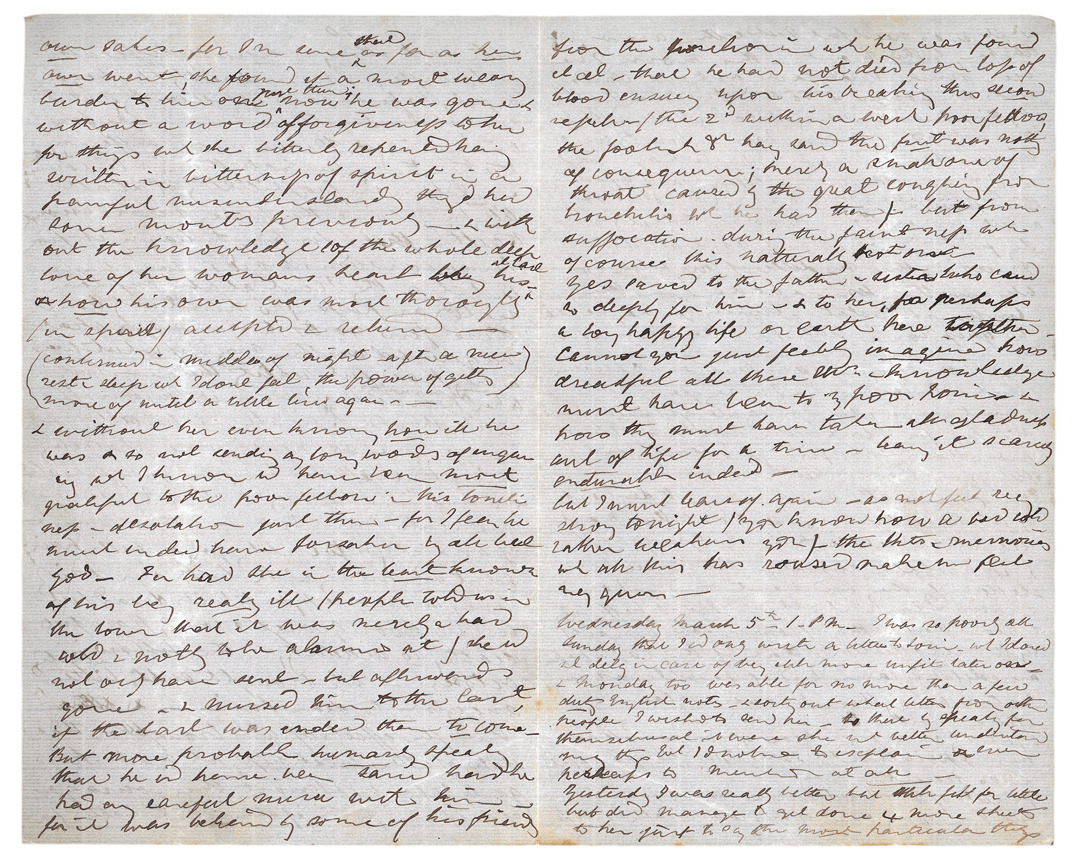 own sakes – for I'm sure that as far as her
own went, she found it a most weary
burden to him one more than now he was gone &
without a word of forgiveness to her
for things wh she bitterly repented having
written in bitterness of spirit in a
painful misunderstanding they'd had
some months previously – & with
out the knowledge of the whole deep
love of her woman's heart being his –
& how his own was most thoroughly at last
(in spirit) accepted & returned —
(continued in middle of night after a nice
rest & sleep wh I don't feel the power of getting
more of until a little time again. —)
& without her even knowing how ill he
was & so not sending any long words of
wh I know wd have been most
grateful to the poor fellow in his loneli
ness & desolation just then – for I fear he
must indeed have forsaken by all but
God – For had she in the least known
of his being really ill (people told us in
the town that it was merely a bad
cold & nothg to be alarmed at) she wd
not only have sent – but afterwards
gone – & nursed him to the last,
if the last was indeed then to come –
But more probable humanly speakg
that he wd have been saved had he
had any careful nurse with him –
for it was believed by some of his friends
from the position in wh he was found
– that he had not died from loss of
blood ensuing upon his breaking this second
(the 2nd within a week poor fellow!
the foolish Dr havg said the first was nothg
of consequence; merely a small one of
throat caused by the great coughing from
bronchitis wh he had then) – but from
suffocation during the faintness wh
of course this naturally
saved to the father & sister who cared
so deeply for him – & to her, for perhaps
a long happy life on earth here together –
cannot you just feebly imagine how
dreadful all these & knowledge
must have been to poor home – &
how they must have taken all gladness
out of life for a time – leavg it scarcely
endurable indeed —
but I must leave off again – as not feel very
strong tonight (you know how a bad cold
rather weakens you) – & the thts & memories
wh all this has roused make me feel
very queer —
Wednesday March 5th 1. P.M. – I was so poorly all
Sunday that I'd only write a letter to wh I dared
not delay in case of being still more unfit later on –
& Monday too was able for no more than a few
duty English notes – & sorting out what letters from other
people I wished to send her – to there by speak for
themselves as it were she wd better understand
many thgs wh I do not like to explain or even
perhaps to mention at all —
Yesterday I was really better but still fit for little
but did manage to get done 4 more sheets
to her just to say the most particular things